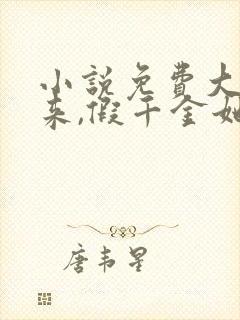 小说免费大
来,假千金她
唐韦星